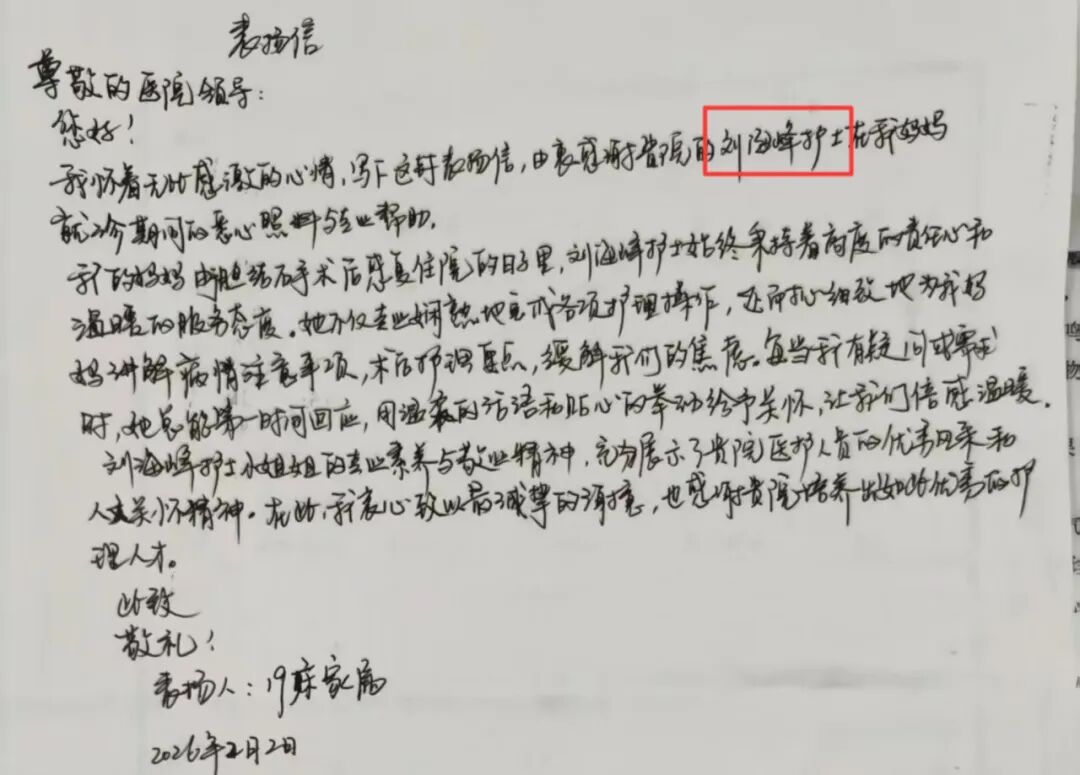 表扬信
尊敬的医院领导：
您好！
我怀着无比感激的心情，写下这封表扬信，由衷感谢贵院的刘海峰护士在我妈妈
就诊期间的悉心照料与专业帮助。
我的妈妈因胆结石手术后感复住院的日子里，刘海峰护士始终秉持着高度的责任心和
温暖的服务态度。她不仅专业娴熟地完成各项护理操作，还耐心细致地为我妈
妈讲解病情注意事项，术后护理要点，缓解我们的焦虑。每当我有疑问或需求
时，她总能第一时间回应，用温柔的话语和贴心的举动给予关怀，让我们倍感温暖。
刘海峰护士小姐姐的专业素养与敬业精神，充分展示了贵院医护人员的优秀风采和
人文关怀精神。在此，我衷心致以最诚挚的谢意，也感谢贵院培养出如此优秀的护
理人才。
此致
敬礼！
表扬人：19床家属
2026年2月2日